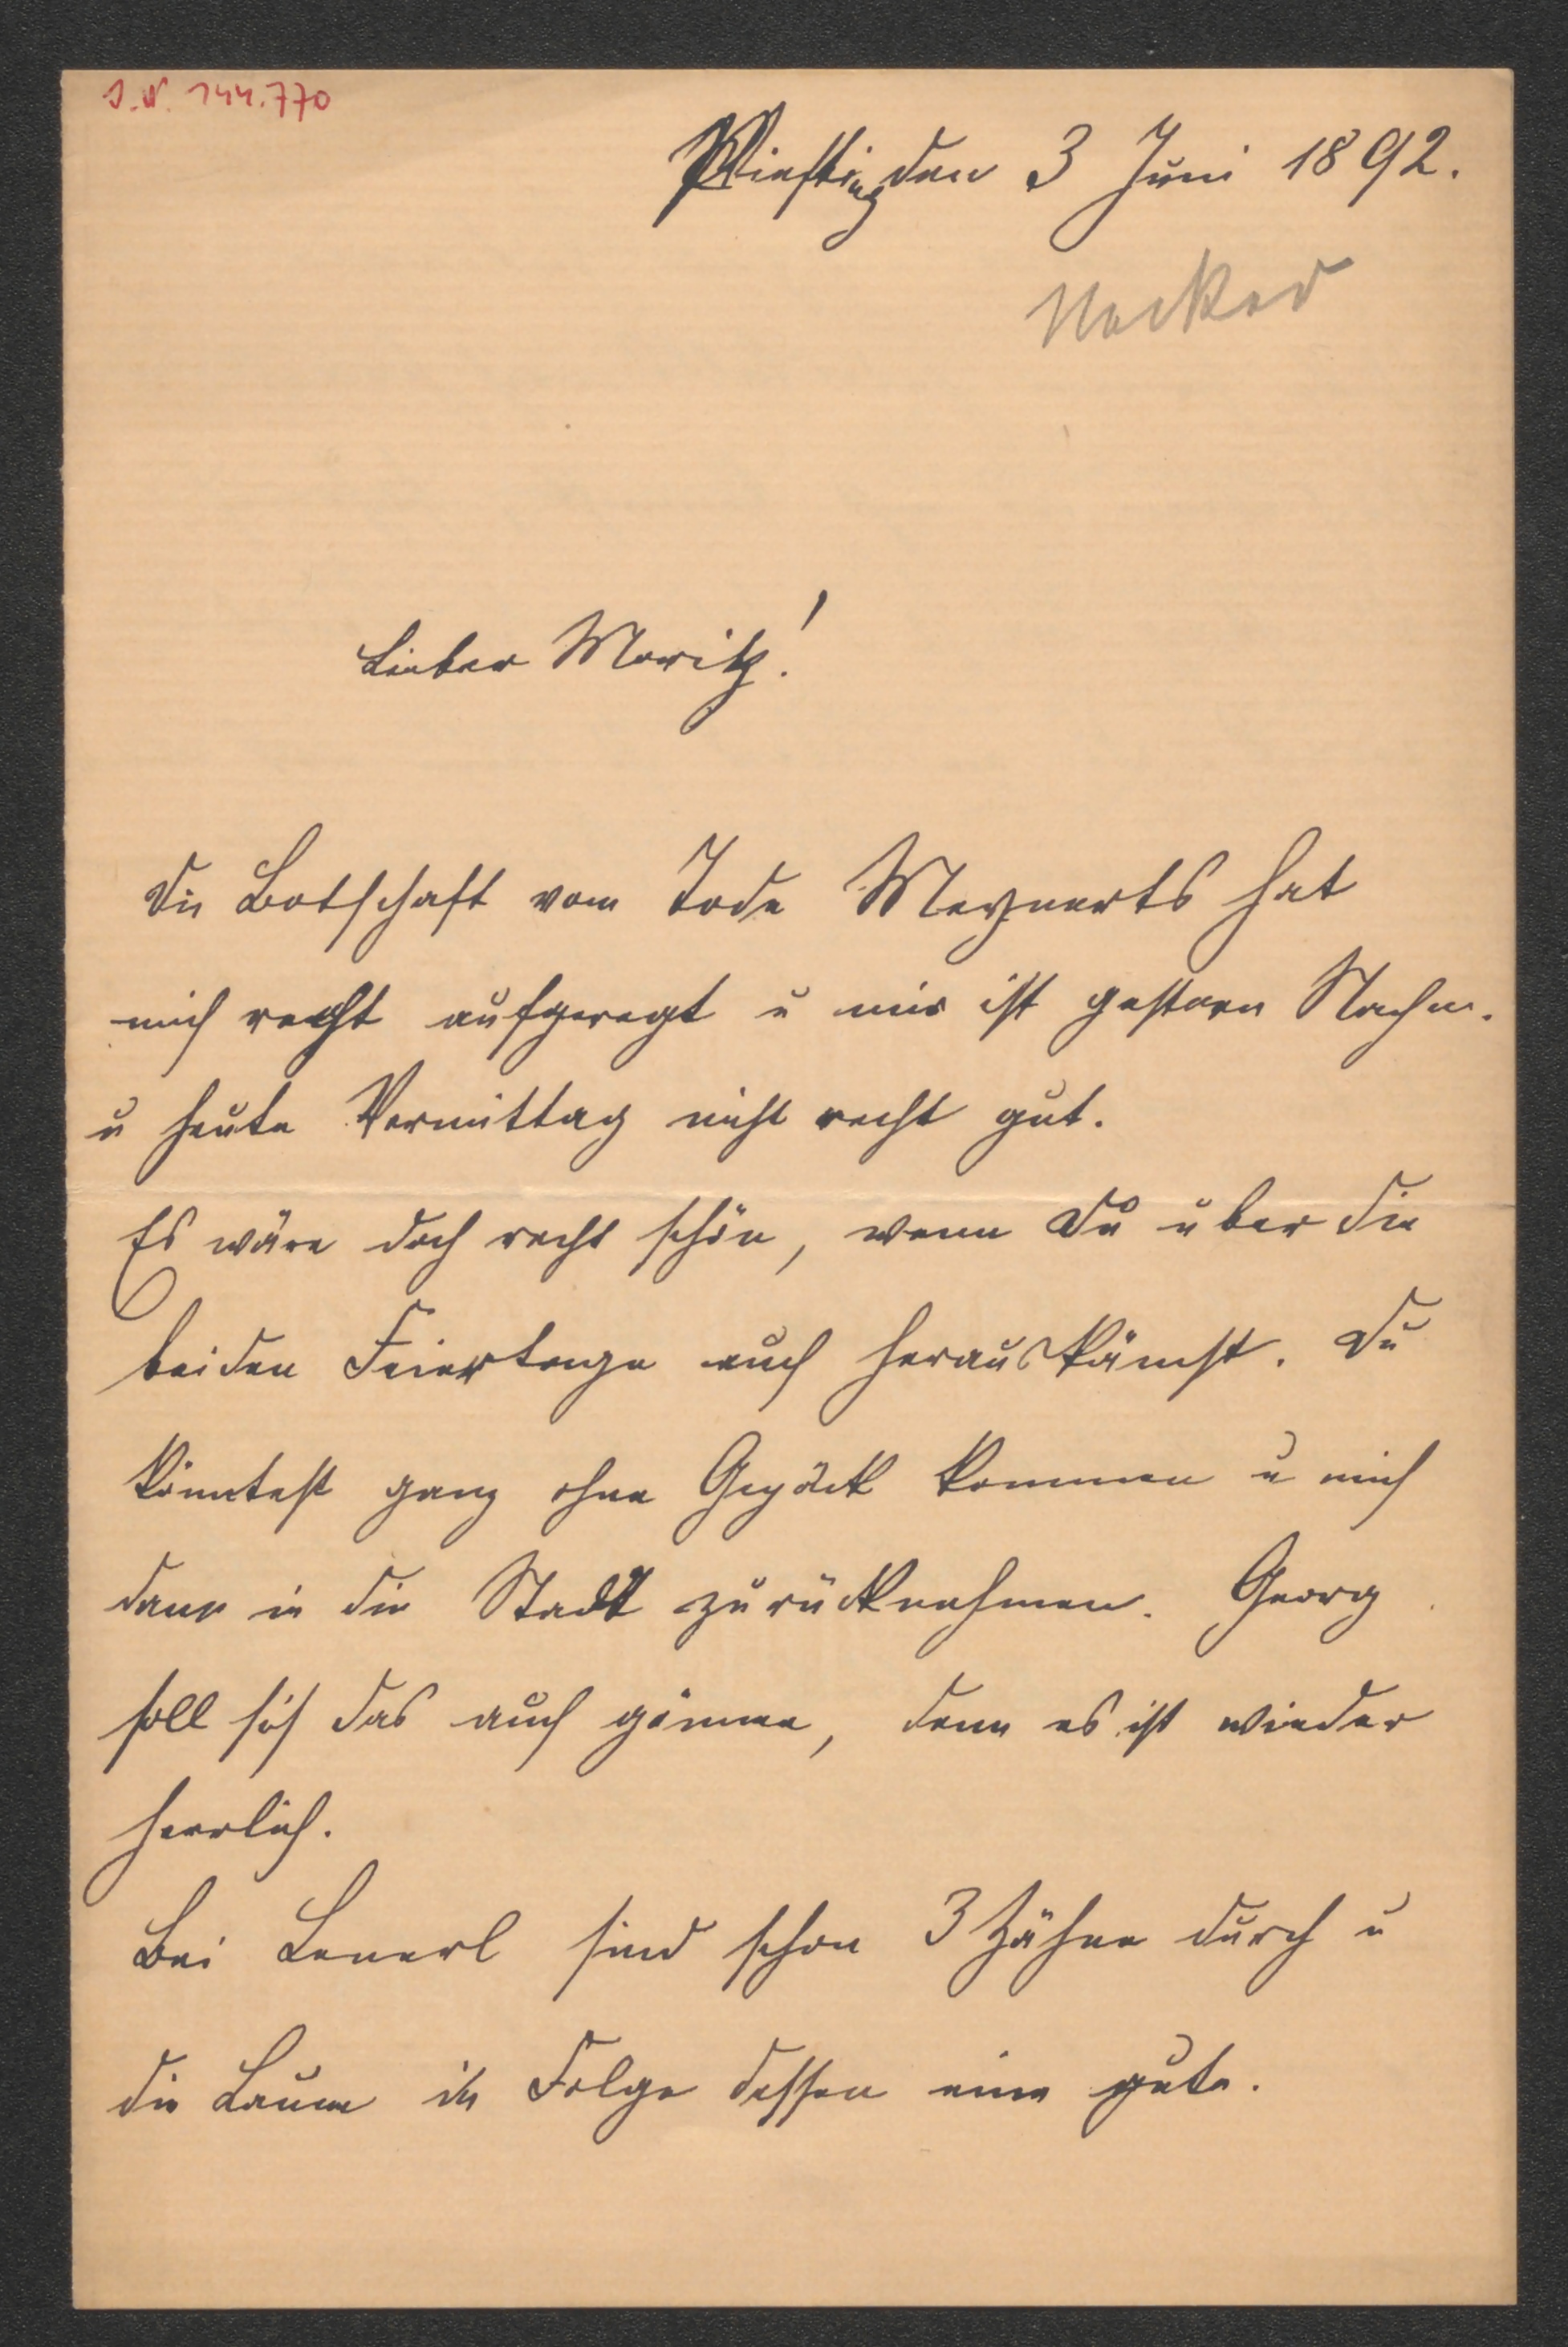 J.N. 144.770
Piesting den 3 Juni 1892.
Necker
Lieber Moritz!
Die Botschaft vom Tode Meynerts hat
mich recht aufgeregt u mir ist gestern Nachm.
u heute Vormittag nicht recht gut.
Es wäre doch recht schön, wenn Du über die
beiden Feiertage auch herauskämst. Du
könntest ganz ohne Gepäck kommen u mich
dann in die Stadt zurücknehmen. Georg
soll sich das auch gönnen, denn es ist wieder
herrlich.
Bei Lenerl sind schon 3 Zähne durch u
die Laune in Folge dessen eine gute.